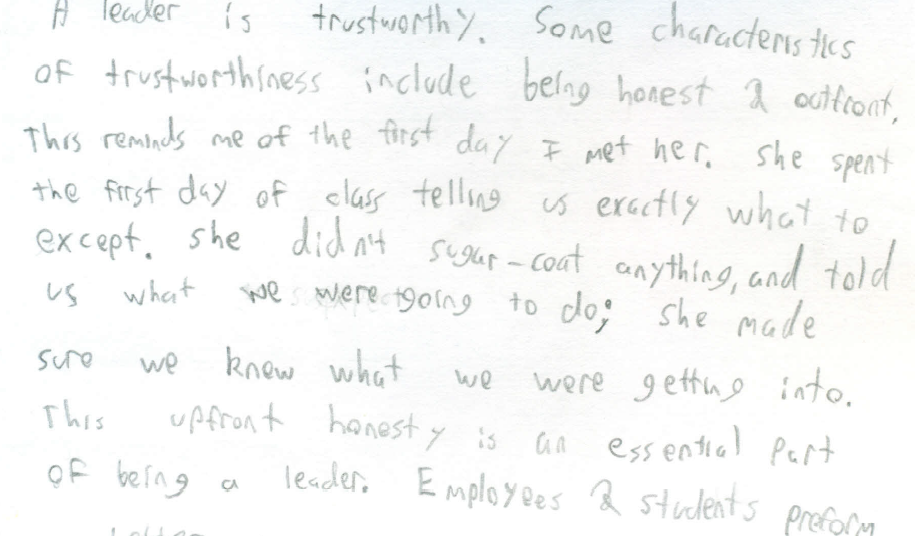 A leader is trustworthy. Some characteristics
of trustworthiness include being honest & outfront.
This reminds me of the first day I met her. She spent
the first day of class telling us exactly what to
except. She didn't sugar-coat anything, and told
us what we were going to do; she made
sure we knew what we were getting into.
This upfront honesty is an essential part
of being a leader. Employees & students preform